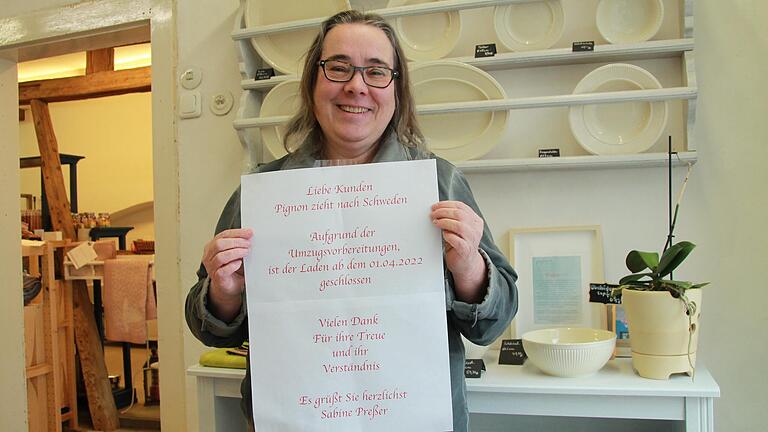 Liebe Kunden
Pignon zieht nach Schweden
Aufgrund der
Umzugsvorbereitungen,
ist der Laden ab dem 01.04.2022
geschlossen
Vielen Dank
Für ihre Treue
und ihr
Verständnis
Es grüßt Sie herzlichst
Sabine Preßer